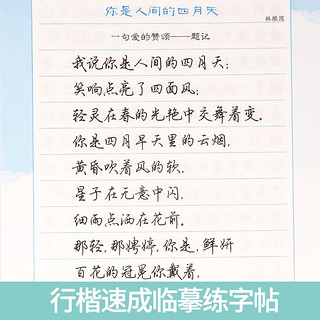 你是人间的四月天
林徽因
一句爱的赞颂——题记
我说你是人间的四月天；
笑响点亮了四面风；
轻灵在春的光艳中交舞着变。
你是四月早天里的云烟，
黄昏吹着风的软，
星子在无意中闪，
细雨点洒在花前。
那轻，那娉婷，你是，鲜妍
百花的冠冕你戴着，
行楷速成临摹练字帖